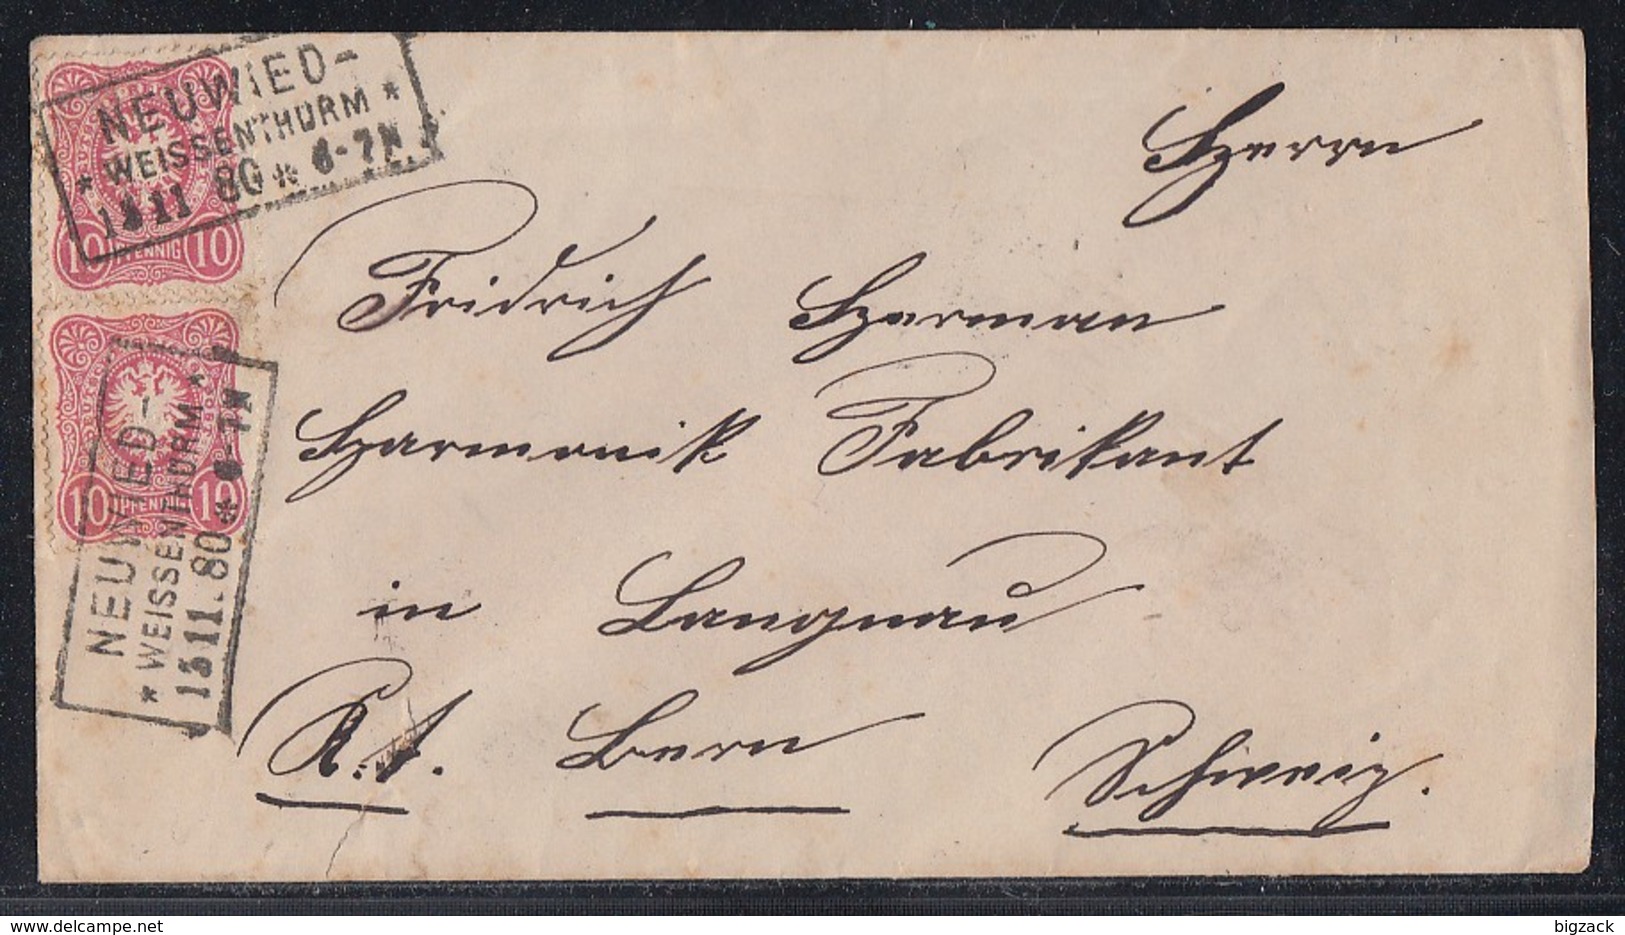 NEUWIED-
* WEISSENTHURM *
11 80 * 6-7N.
10 PFENNIG 10
NEUWIED-
* WEISSENTHURM *
11.80 * 6-7N
10 PFENNIG 10
Herrn
Fridrich Herman
Harmonik Fabrikant
in Langnau
Kt. Bern Schweiz.
bigzack